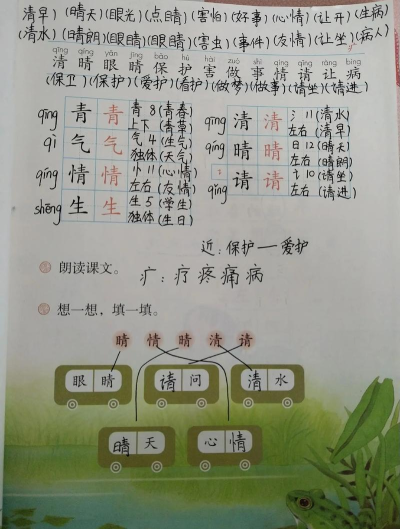 清早）（晴天）（眼光）（点睛）（害怕）（好事）（心情）（让开）（生病）
（清水）（晴朗）（眼睛）（眼睛）（害虫）（事件）（友情）（让坐）（病人）
qīng qíng yǎn jīng bǎo hù hài zuò shì qíng qǐng ràng bìng
清 晴 眼 睛 保 护 害 做 事 情 请 让 病
（保卫）（保护）（爱护）（看护）（做梦）（做事）（请坐）（请进）
qīng 青 青 青 8（青春）
上下（青草）
qì 气 气 气 4（生气）
独体（天气）
qíng 情 情 忄 11（心情）
左右（友情）
shēng 生 生 生 5（学生）
独体（生日）
qīng 清 清 氵 11（清水）
左右（清早）
qíng 晴 晴 日 12（晴天）
左右（晴朗）
qǐng 请 请 讠 10（请坐）
左右（请进）
近：保护—爱护
朗读课文。
疒：疗 疼 痛 病
想一想，填一填。
睛 情 晴 清 请
眼 睛 请 问 清 水
晴 天 心 情